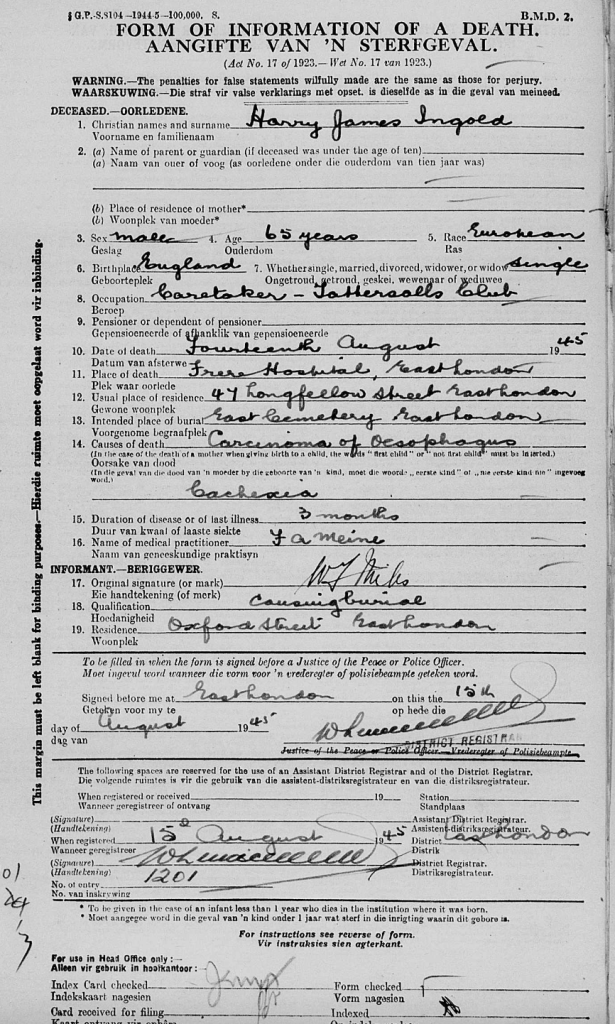 § G.P.-S.8104—1944-5—100,000. S. B.M.D. 2.
FORM OF INFORMATION OF A DEATH.
AANGIFTE VAN 'N STERFGEVAL.
(Act No. 17 of 1923.—Wet No. 17 van 1923.)
WARNING.—The penalties for false statements wilfully made are the same as those for perjury.
WAARSKUWING.—Die straf vir valse verklarings met opset. is dieselfde as in die geval van meineed.
DECEASED.—OORLEDENE.
1. Christian names and surname Harry James Ingold
Voorname en familienaam
2. (a) Name of parent or guardian (if deceased was under the age of ten)
(a) Naam van ouer of voog (as oorledene onder die ouderdom van tien jaar was)
(b) Place of residence of mother*
(b) Woonplek van moeder*
3. Sex male 4. Age 65 years 5. Race European
Geslag Ouderdom Ras
6. Birthplace England 7. Whether single, married, divorced, widower, or widow single
Geboorteplek Ongetroud, getroud, geskei, wewenaar of weduwee
8. Occupation Caretaker - Tattersalls Club
Beroep
9. Pensioner or dependent of pensioner
Gepensioeneerde of afhanklik van gepensioeneerde
10. Date of death Fourteenth August 1945
Datum van afsterwe
11. Place of death Frere Hospital, East London
Plek waar oorlede
12. Usual place of residence 47 Longfellow Street East London
Gewone woonplek
13. Intended place of burial East Cemetery East London
Voorgenome begraafplek
14. Causes of death Carcinoma of Oesophagus
(In the case of the death of a mother when giving birth to a child, the words "first child" or "not first child" must be inserted.)
Oorsake van dood
(In die geval van die dood van 'n moeder by die geboorte van 'n kind, moet die woorde "eerste kind" of "nie eerste kind nie" ingevoeg
word.)
Cachexia
15. Duration of disease or of last illness 3 months
Duur van kwaal of laaste siekte
16. Name of medical practitioner F A Meine
Naam van geneeskundige praktisyn
INFORMANT.—BERIGGEWER.
17. Original signature (or mark)
Eie handtekening (of merk)
18. Qualification causing burial
Hoedanigheid
19. Residence Oxford Street East London
Woonplek
To be filled in when the form is signed before a Justice of the Peace or Police Officer.
Moet ingevul word wanneer die vorm voor 'n vrederegter of polisiebeampte geteken word.
Signed before me at East London on this the 15th
Geteken voor my te op hede die
day of August 1945
dag van
DISTRICT REGISTRAR
Justice of the Peace or Police Officer.—Vrederegter of Polisiebeampte.
The following spaces are reserved for the use of an Assistant District Registrar and of the District Registrar.
Die volgende ruimtes is vir die gebruik van die assistent-distriksregistrateur en van die distriksregistrateur.
When registered or received 19 Station
Wanneer geregistreer of ontvang Standplaas
(Signature) Assistant District Registrar.
(Handtekening) Assistent-distriksregistrateur.
When registered 15 August 1945 District East London
Wanneer geregistreer Distrik
(Signature) District Registrar.
(Handtekening) Distriksregistrateur.
No. of entry 1201
No. van inskrywing
* To be given in the case of an infant less than 1 year who dies in the institution where it was born.
* Moet aangegee word in die geval van 'n kind onder 1 jaar wat sterf in die inrigting waarin dit gebore is.
For instructions see reverse of form.
Vir instruksies sien agterkant.
For use in Head Office only:—
Alleen vir gebruik in hoofkantoor:
Index Card checked Form checked
Indekskaart nagesien Vorm nagesien
Card received for filing Indexed
Kaart ontvang vir
This margin must be left blank for binding purposes.—Hierdie ruimte moet oopgelaat word vir inbinding.